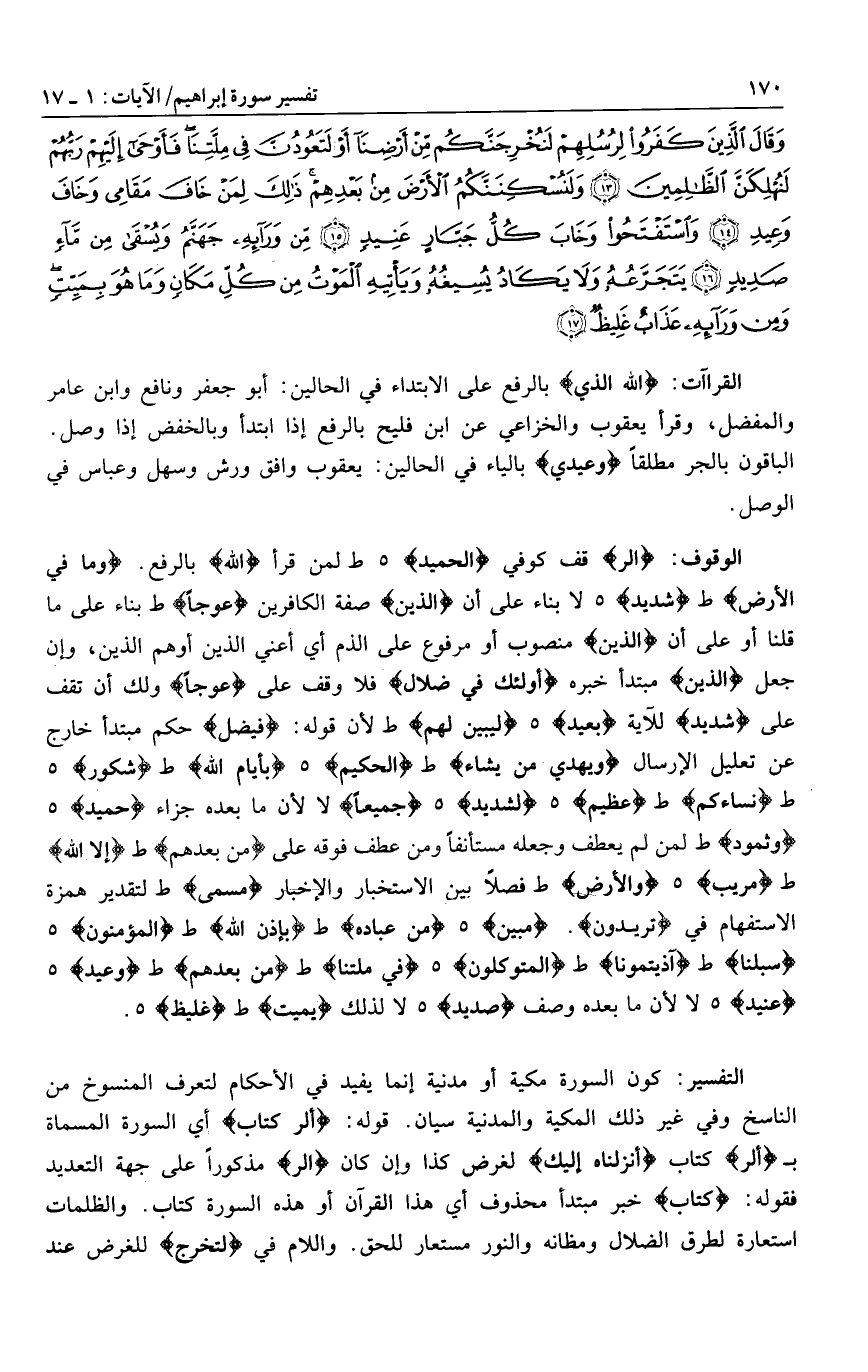 ١٧٠
تفسير سورة إبراهيم/ الآيات: ١ ـ ١٧
وَقَالَ ٱلَّذِينَ كَفَرُوا۟ لِرُسُلِهِمْ لَنُخْرِجَنَّكُم مِّنْ أَرْضِنَآ أَوْ لَتَعُودُنَّ فِى مِلَّتِنَا ۖ فَأَوْحَىٰٓ إِلَيْهِمْ رَبُّهُمْ
لَنُهْلِكَنَّ ٱلظَّـٰلِمِينَ ﴿١٣﴾ وَلَنُسْكِنَنَّكُمُ ٱلْأَرْضَ مِنۢ بَعْدِهِمْ ۚ ذَٰلِكَ لِمَنْ خَافَ مَقَامِى وَخَافَ
وَعِيدِ ﴿١٤﴾ وَٱسْتَفْتَحُوا۟ وَخَابَ كُلُّ جَبَّارٍ عَنِيدٍ ﴿١٥﴾ مِّن وَرَآئِهِۦ جَهَنَّمُ وَيُسْقَىٰ مِن مَّآءٍ
صَدِيدٍ ﴿١٦﴾ يَتَجَرَّعُهُۥ وَلَا يَكَادُ يُسِيغُهُۥ وَيَأْتِيهِ ٱلْمَوْتُ مِن كُلِّ مَكَانٍ وَمَا هُوَ بِمَيِّتٍ ۖ
وَمِن وَرَآئِهِۦ عَذَابٌ غَلِيظٌ ﴿١٧﴾
القراآت: ﴿الله الذي﴾ بالرفع على الابتداء في الحالين: أبو جعفر ونافع وابن عامر
والمفضل، وقرأ يعقوب والخزاعي عن ابن فليح بالرفع إذا ابتدأ وبالخفض إذا وصل.
الباقون بالجر مطلقاً ﴿وعيدي﴾ بالياء في الحالين: يعقوب وافق ورش وسهل وعباس في
الوصل.
الوقوف: ﴿الر﴾ قف كوفي ﴿الحميد﴾ ٥ ط لمن قرأ ﴿الله﴾ بالرفع. ﴿وما في
الأرض﴾ ط ﴿شديد﴾ ٥ لا بناء على أن ﴿الذين﴾ صفة الكافرين ﴿عوجاً﴾ ط بناء على ما
قلنا أو على أن ﴿الذين﴾ منصوب أو مرفوع على الذم أي أعني الذين أوهم الذين، وإن
جعل ﴿الذين﴾ مبتدأ خبره ﴿أولئك في ضلال﴾ فلا وقف على ﴿عوجاً﴾ ولك أن تقف
على ﴿شديد﴾ للآية ﴿بعيد﴾ ٥ ﴿ليبين لهم﴾ ط لأن قوله: ﴿فيضل﴾ حكم مبتدأ خارج
عن تعليل الإرسال ﴿ويهدي من يشاء﴾ ط ﴿الحكيم﴾ ٥ ﴿بأيام الله﴾ ط ﴿شكور﴾ ٥
ط ﴿نساءكم﴾ ط ﴿عظيم﴾ ٥ ﴿لشديد﴾ ٥ ﴿جميعاً﴾ لا لأن ما بعده جزاء ﴿حميد﴾ ٥
﴿وثمود﴾ ط لمن لم يعطف وجعله مستأنفاً ومن عطف فوقه على ﴿من بعدهم﴾ ط ﴿إلا الله﴾
ط ﴿مريب﴾ ٥ ﴿والأرض﴾ ط فصلاً بين الاستخبار والإخبار ﴿مسمى﴾ ط لتقدير همزة
الاستفهام في ﴿تريدون﴾. ﴿مبين﴾ ٥ ﴿من عباده﴾ ط ﴿بإذن الله﴾ ط ﴿المؤمنون﴾ ٥
﴿سبلنا﴾ ط ﴿آذيتمونا﴾ ط ﴿المتوكلون﴾ ٥ ﴿في ملتنا﴾ ط ﴿من بعدهم﴾ ط ﴿وعيد﴾ ٥
﴿عنيد﴾ ٥ لا لأن ما بعده وصف ﴿صديد﴾ ٥ لا لذلك ﴿يميت﴾ ط ﴿غليظ﴾ ٥.
التفسير: كون السورة مكية أو مدنية إنما يفيد في الأحكام لتعرف المنسوخ من
الناسخ وفي غير ذلك المكية والمدنية سيان. قوله: ﴿ألر كتاب﴾ أي السورة المسماة
بـ ﴿ألر﴾ كتاب ﴿أنزلناه إليك﴾ لغرض كذا وإن كان ﴿الر﴾ مذكوراً على جهة التعديد
فقوله: ﴿كتاب﴾ خبر مبتدأ محذوف أي هذا القرآن أو هذه السورة كتاب. والظلمات
استعارة لطرق الضلال ومظانه والنور مستعار للحق. واللام في ﴿لتخرج﴾ للغرض عند